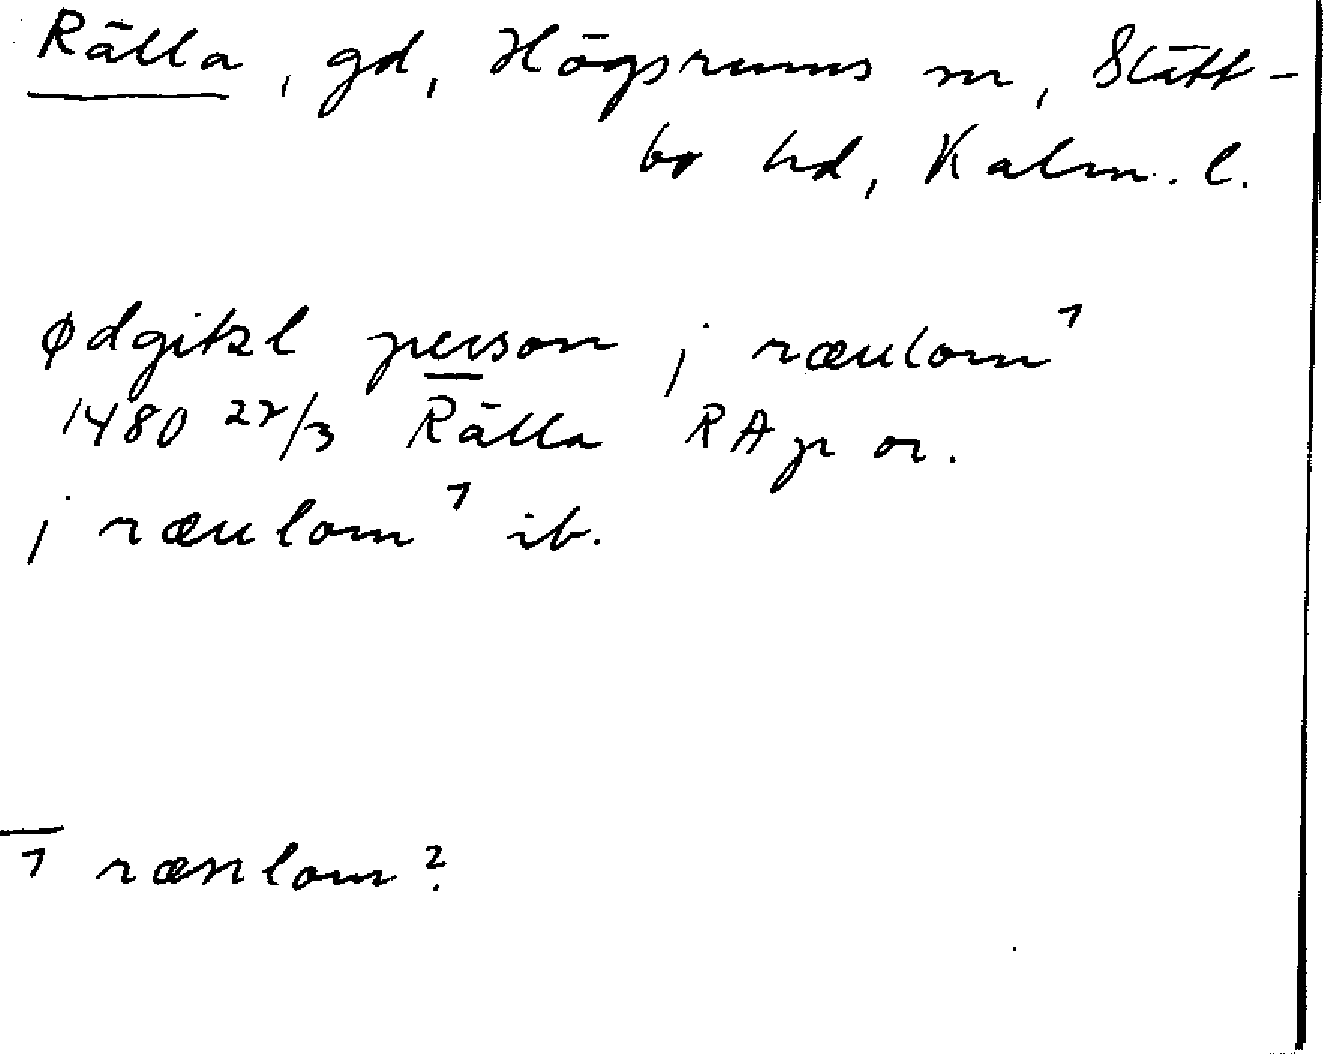 Rälla, gd, Högsrums sn, Slätt-
bo hd, Kalm. l.
ødgisl person j ræulom¹
1480 22/3 Rälla RAp or.
j ræulom¹ ib.
¹ rænlom?